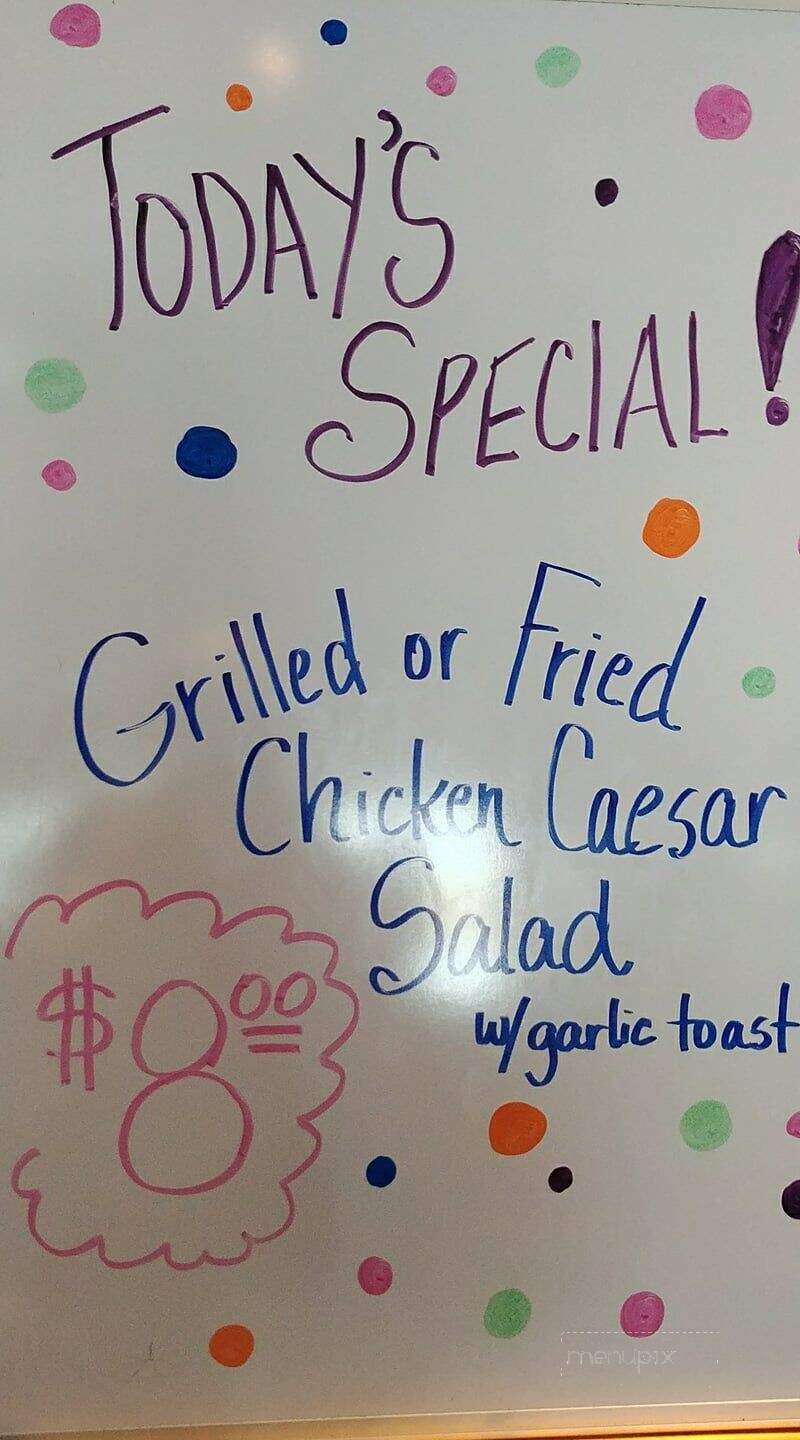 TODAY'S
SPECIAL!
Grilled or Fried
Chicken Caesar
Salad
w/garlic toast
$8.00
menupix